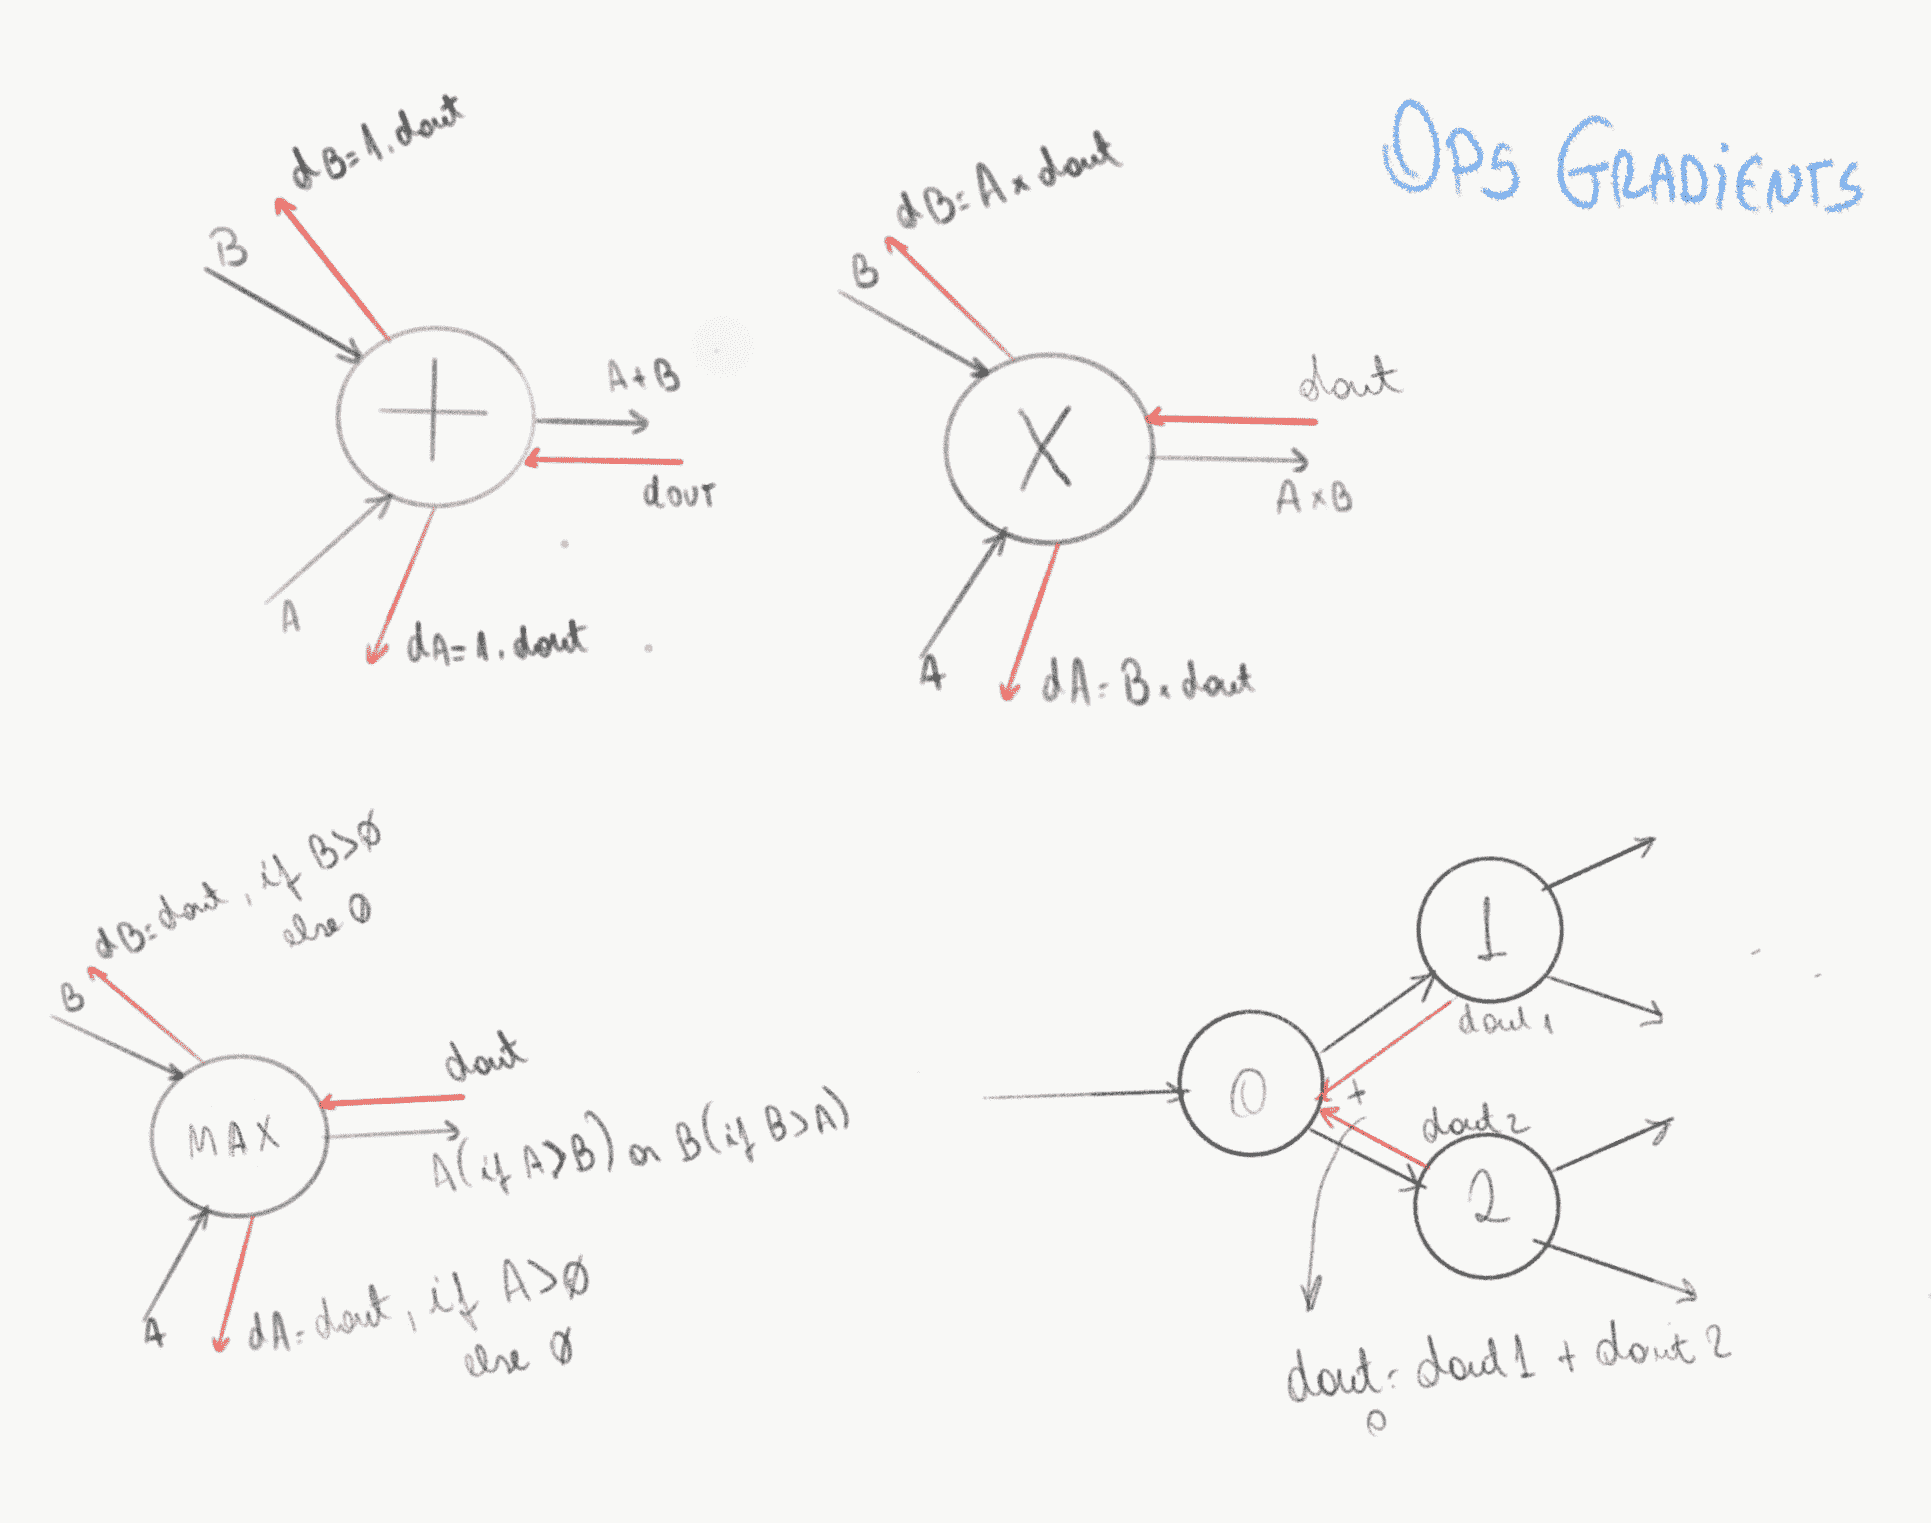 OPS GRADIENTS
dB=1.dout
B
+
A+B
dout
A
dA=1.dout
dB=A x dout
B
X
dout
AxB
A
dA=B x dout
dB=dout, if B>0
else 0
B
MAX
dout
A(if A>B) or B(if B>A)
A
dA=dout, if A>0
else 0
1
dout1
0
+
dout2
2
dout0=dout1+dout2